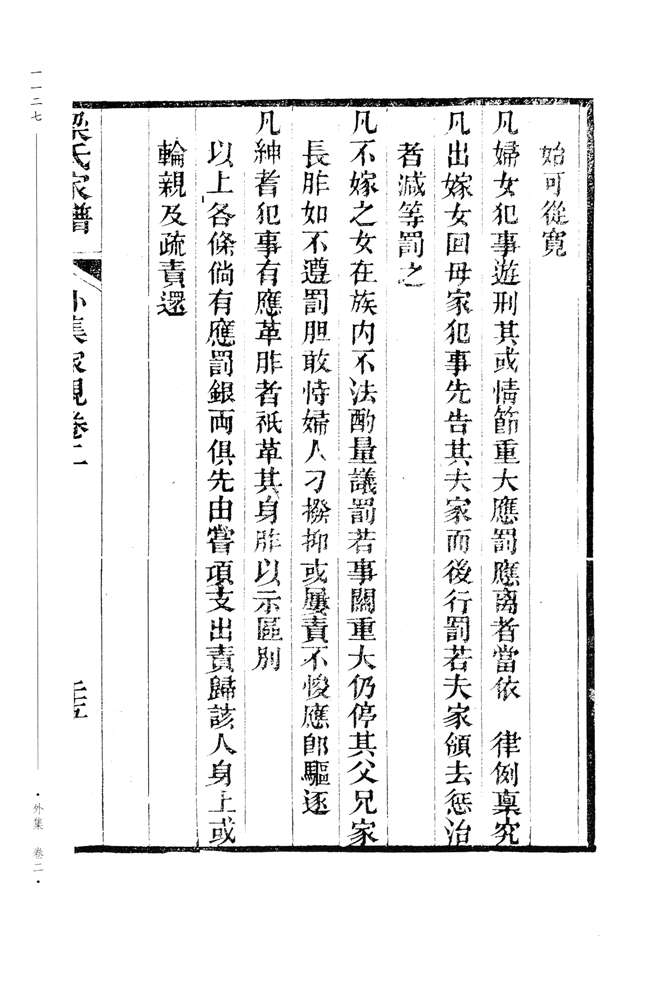 始可從寬
凡婦女犯事遊刑其或情節重大應罰應离者當依　律例禀究
凡出嫁女回母家犯事先告其夫家而後行罰若夫家領去惩治
者減等罰之
凡不嫁之女在族内不法酌量議罰若事關重大仍停其父兄家
長胙如不遵罰胆敢恃婦人刁撥抑或屢責不悛應郎驅逐
凡紳耆犯事有應革胙者祇革其身胙以示區别
以上各條倘有應罰銀両俱先由嘗項支出責歸該人身上或
輪親及疏責還
梁氏家譜
外集家規卷二
一一二七
·外集　卷二·